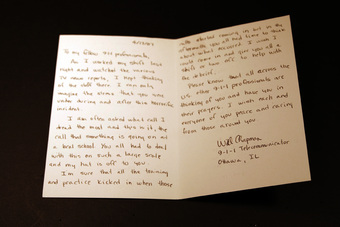 To my fellow 911 professionals,
As I worked my shift last
night and watched the various
TV news reports, I kept thinking
of the calls there I can only
imagine the stress that you were
under during and after this
incident.
I am often asked what call I
dread the most and this is it, the
call that something is going on at
a local school. You all had to deal
with this on such a large scale
and my hat is off to you.
I'm sure that all the training
and practice kicked in when those
calls started coming in but in the
you all had time to think
about what occured. I wish I
could come in and give you all a
shift or two off to help with
the debrief.
Please know that all across the
US other 9-1-1 professionals are
thinking of you and have you in
their prayers. I wish each and
everyone of you peace and caring
from those around you.
Will
9-1-1 Telecommunicator
Ottawa, IL